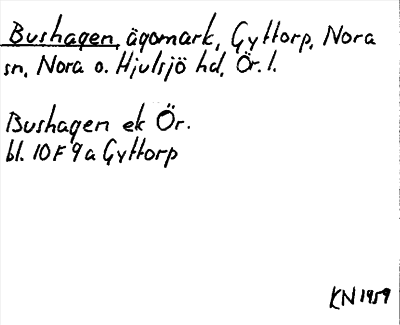 Bushagen, ägomark, Gyttorp, Nora
sn, Nora o. Hjulsjö hd, Ör. l.
Bushagen ek Ör.
bl. 10F 9a Gyttorp
KN 1959